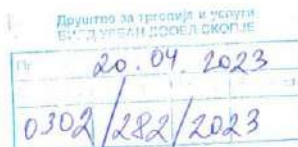 Друштво за трговија и услуги
БИЛД УРБАН ДООЕЛ СКОПЈЕ
20.04.2023
0302/282/2023